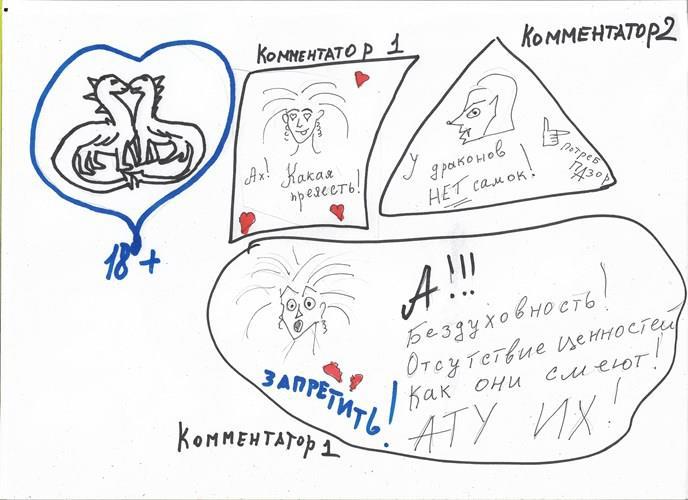 18+
Комментатор 1
Ах! Какая
прелесть!
Комментатор 2
У драконов
НЕТ самок!
потреб
над зор
А!!!
Бездуховность!
Отсутствие ценностей
Как они смеют!
АТУ ИХ!
ЗАПРЕТИТЬ!
Комментатор 1